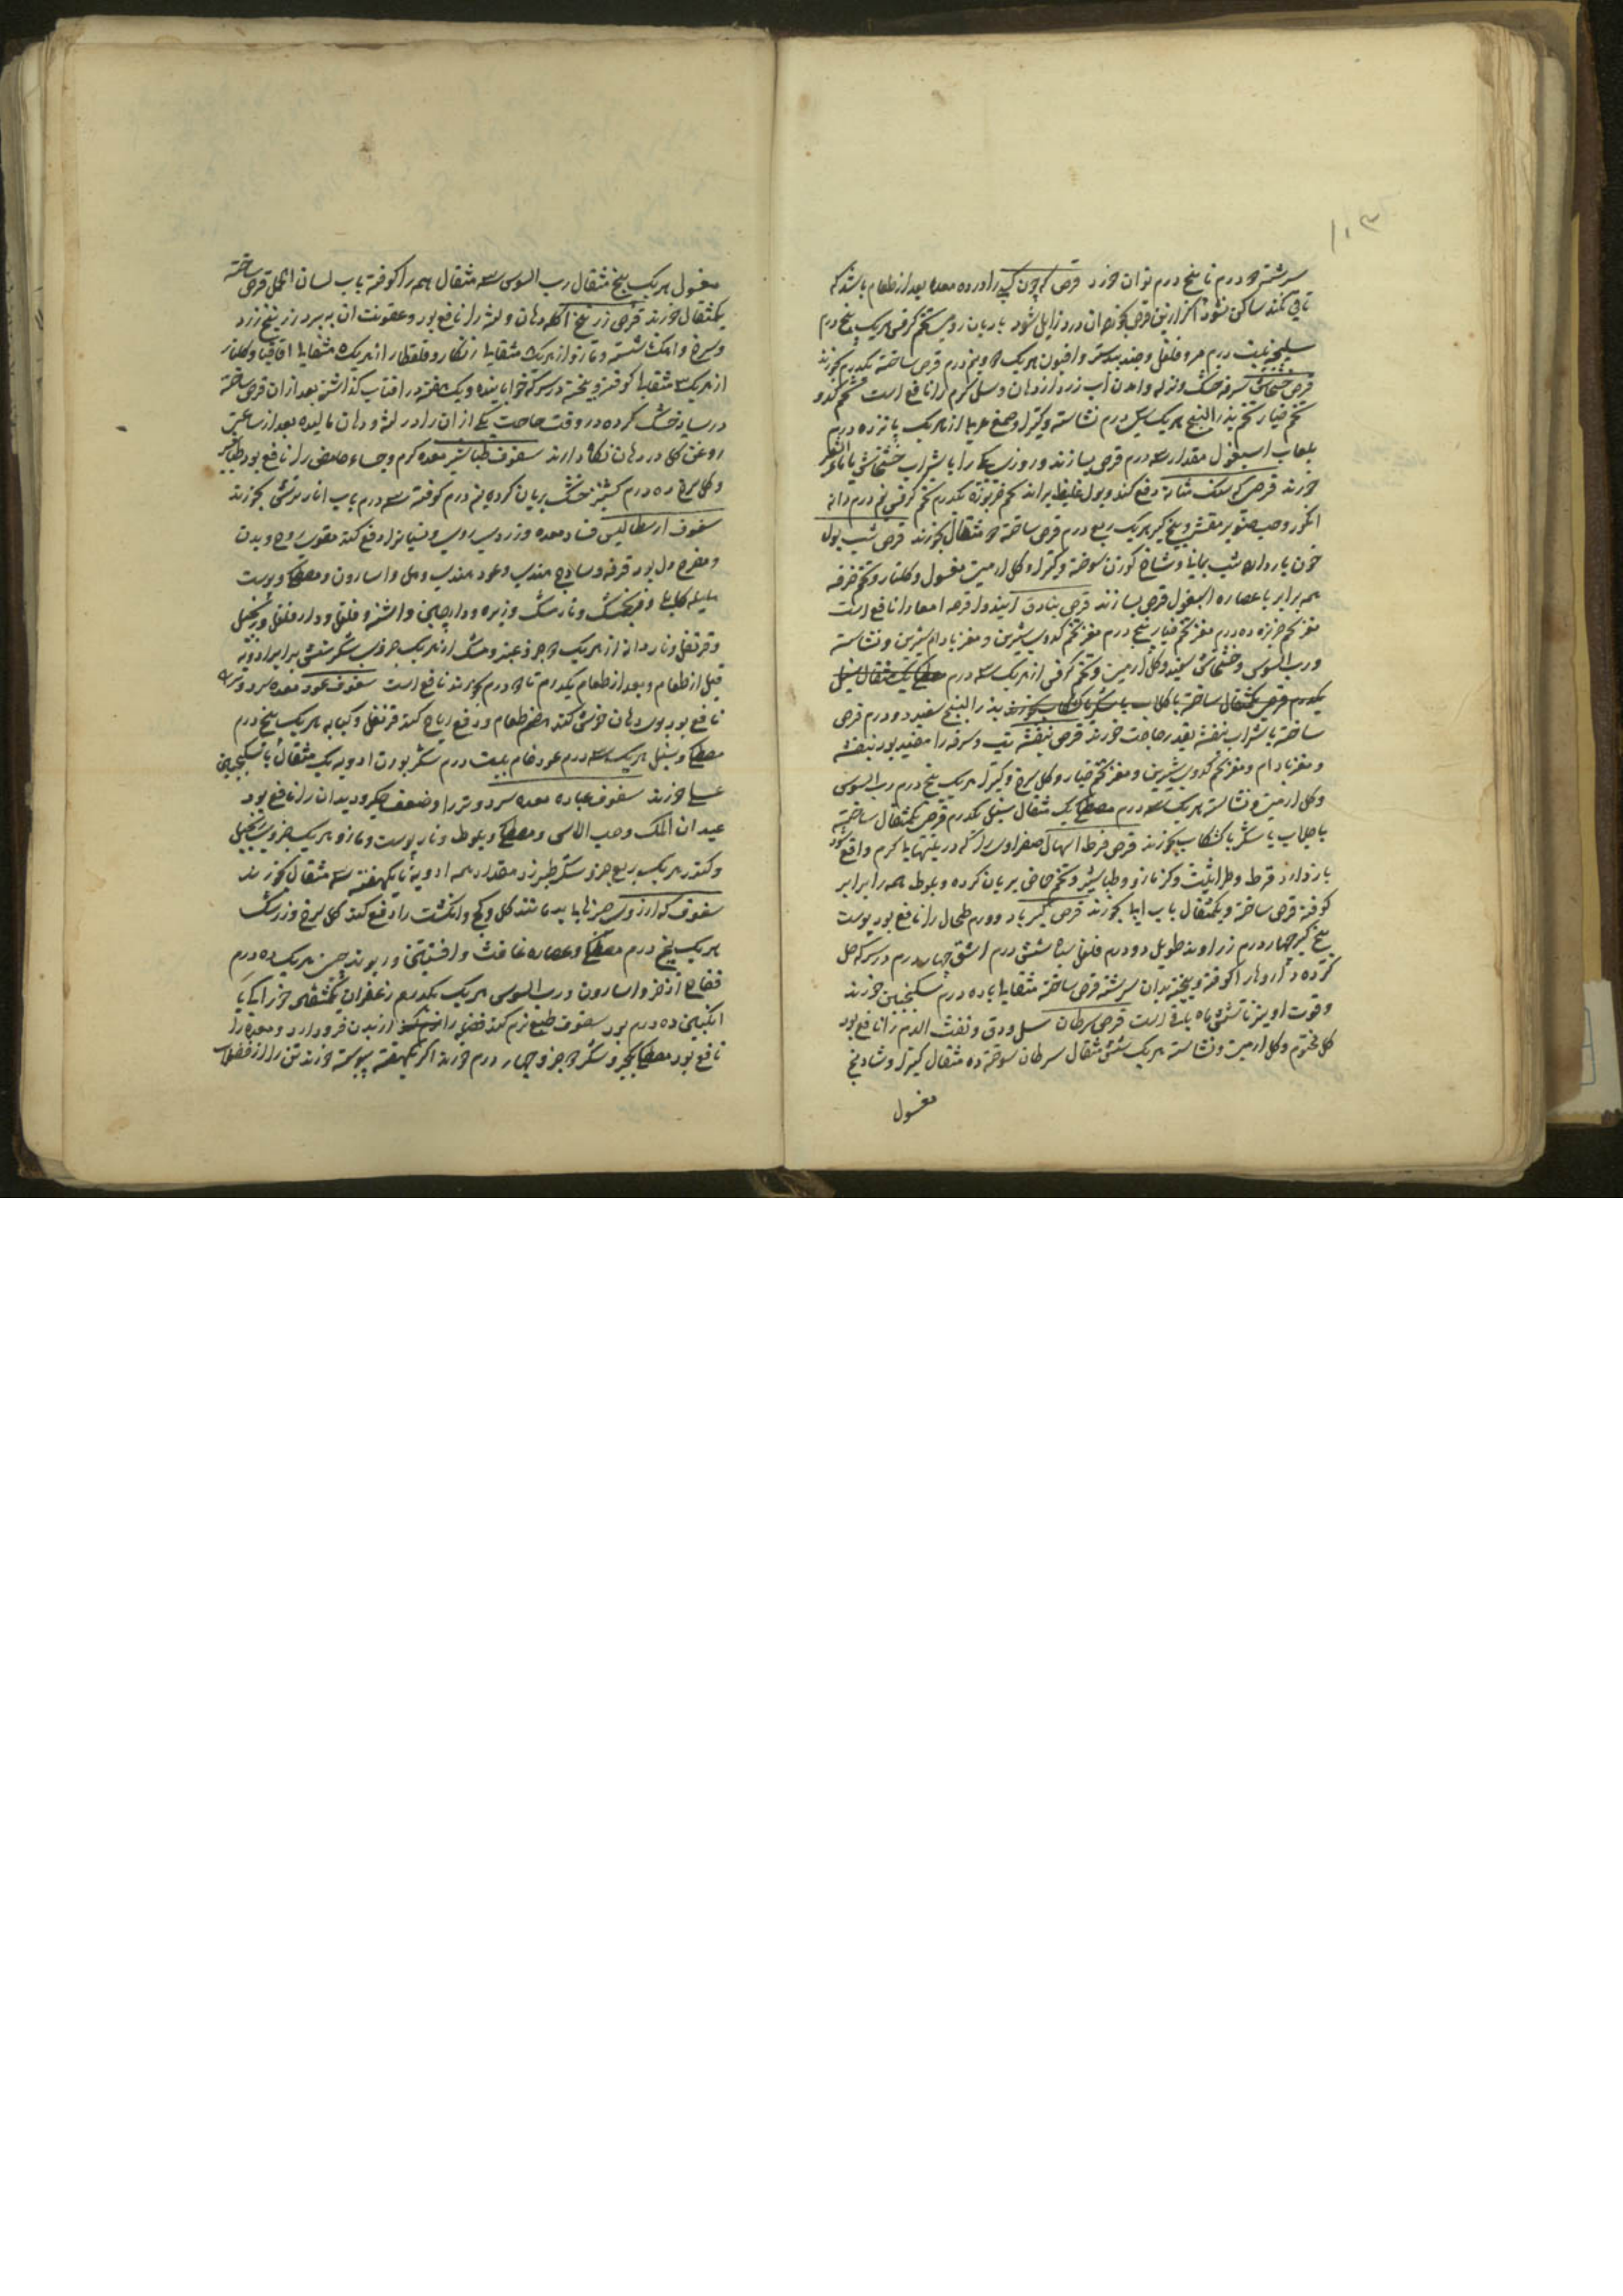 ۱۰۳
سرشته ۲ درم تا پنج درم توان خورد قرص که چون کسی را درد معده بعد از طعام باشد که
تا قی نکند ساکن نشود اگر ازین قرص بخورد آن درد زایل شود بادیان رومی تخم کرفس هر یک پنج درم
سلیخه بیست درم مر و فلفل و جندبیدستر و افیون هر یک ۲ و نیم درم قرص ساخته یکدرم بخورند
قرص خشخاش سرفه خشک و نزله و آمدن آب زرد از دهان و سل گرم را نافع است تخم کدو
تخم خیار تخم بذر البنج هر یک درم نشاسته و کتیرا و صمغ عربی از هر یک پانزده درم
بلعاب اسبغول مقدار سه درم قرص بسازند و روزی یکی را با شراب خشخاش
خورند قرص که سنگ مثانه دفع کند و بول غلیظ براند تخم خربوزه یکدرم تخم کرفس نیم درم دانه
انگور و حب صنوبر مقشر و بیخ کبر هر یک ربع درم قرص ساخته ۲ مثقال بخورند قرص شب بول
خون باز دارد شب یمانی و شاخ گوزن سوخته و کتیرا و گل ارمنی مغسول و گلنار و تخم خرفه
همه برابر با عصاره اسبغول قرص بسازند قرص بنادق قرحه امعا را نافع است
مغز تخم خربزه ده درم مغز تخم خیار پنج درم مغز تخم کدوی شیرین و مغز بادام شیرین و نشاسته
و رب السوس و خشخاش سفید و گل ارمنی و تخم کرفس از هر یک سه درم مصطکی یک مثقال سنبل
یکدرم قرص یکمثقال ساخته با گلاب یا سکر یا کشکاب بخورند بذر البنج سفید دو درم قرص
ساخته با شراب بنفشه بقدر حاجت خورند قرص بنفشه تب و سرفه را مفید بود بنفشه
و مغز بادام و مغز تخم کدوی شیرین و مغز تخم خیار و گل سرخ و کتیرا هر یک پنج درم رب السوس
و گل ارمنی و نشاسته هر یک سه درم مصطکی یک مثقال سنبل یکدرم قرص یکمثقال ساخته
با جلاب یا سکر یا کشکاب بخورند قرص قرط اسهال صفراوی را که در تبهای گرم واقع شود
باز دارد قرط و طراثیث و کزمازو و طباشیر و تخم حماض بریان کرده و بلوط همه را برابر
کوفته قرص ساخته و یکمثقال بآب بخورند قرص کبر باد و ورم طحال را نافع بود پوست
بیخ کبر چهار درم زراوند طویل دو درم فلفل سیاه شش درم اشق چهار درم در سرکه حل
کرده داروها را کوفته و بیخته بدان سرشته قرص ساخته مثقالی با ده درم سکنجبین خورند
و قوت او نیز تا شش ماه باقی است قرص سرطان سل و دق و نفث الدم را نافع بود
گل مختوم و گل ارمنی و نشاسته هر یک شش مثقال سرطان سوخته ده مثقال کتیرا و شادنج
مغسول
مغسول هر یک پنج مثقال رب السوس سه مثقال همه را کوفته بآب لسان الحمل قرص ساخته
یکمثقال خورند قرص زرنیخ آکله دهان و لثه را نافع بود و عفونت آن ببرد زرنیخ زرد
و سرخ و آهک ناشسته و مازو از هر یک مثقالی زنگار و قلقطار از هر یک مثقالی اقاقیا و گلنار
از هر یک مثقالی کوفته و بیخته در سرکه خوابانیده و یک هفته در آفتاب گذاشته بعد از آن قرص ساخته
در سایه خشک کرده در وقت حاجت یکی از آن را در لثه و دهان مالیده بعد از ساعتی
روغن گل در دهان نگاه دارند سفوف طباشیر معده گرم و جشاء حامضی را نافع بود طباشیر
و گل سرخ ده درم گشنیز خشک بریان کرده نیم درم کوفته سه درم بآب انار ترش بخورند
سفوف ارسطالیس فساد معده و زردی روی و نسیان را دفع کند مقوی روح و بدن
و مفرح دل بود قرفه و ساذج هندی و عود هندی و هیل و اسارون و مصطکی و پوست
هلیله کابلی و فرنجمشک و نارمشک و زیره و دارچینی و اشنه و فلفل و دارفلفل و زنجبیل
و قرنفل و ناردانه از هر یک ۲ جزو عنبر و مشک از هر یک جزوی سکر شش برابر ادویه
قبل از طعام و بعد از طعام یکدرم تا ۲ درم بخورند نافع است سفوف عود معده سرد و تر را
نافع بود بوی دهان خوش کند هضم طعام و دفع ریاح کند قرنفل و کبابه هر یک پنج درم
مصطکی و سنبل هر یک سه درم عود خام بیست درم سکر بوزن ادویه یک مثقال با سکنجبین
عسلی خورند سفوف عباده معده سرد و تر را و ضعف جگر و دیدان را نافع بود
عیدان الملک و حب الآس و مصطکی و بلوط و نارپوست و مازو هر یک جزوی زنجبیل
و کندر هر یک ربع جزو سکر طبرزد مقدار همه ادویه تا یکهفته سه مثقال بخورند
سفوف که آرزوی چیزها باید مانند گل و گچ و انگشت را دفع کند گل سرخ و زرشک
هر یک پنج درم مصطکی و عصاره غافث و افسنتین و ریوند چینی هر یک ده درم
فقاح اذخر و اسارون و رب السوس هر یک یکدرم زعفران یکمثقال
انگبین ده درم بود سفوف طبع نرم کند فضول را از بدن فرود آرد و معده را
نافع بود مصطکی یکجزو و سکر ۲ جزو چهار درم خورند اگر یکهفته پیوسته خورند تن را از فضلات